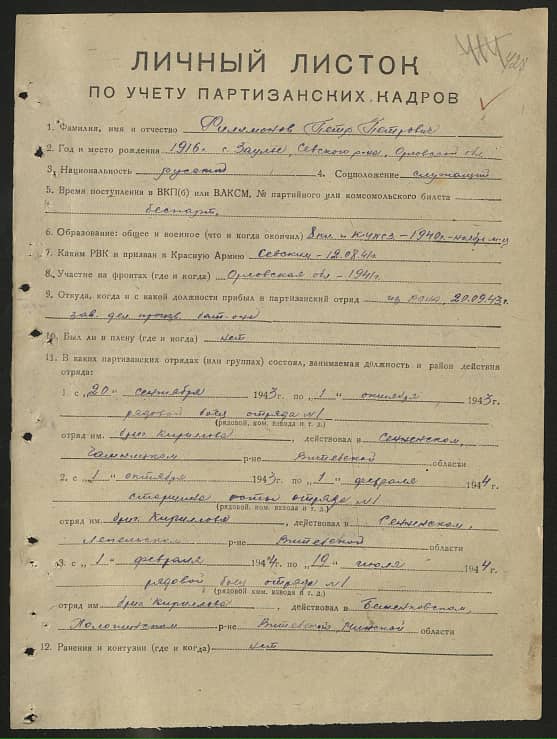 428
ЛИЧНЫЙ ЛИСТОК
ПО УЧЕТУ ПАРТИЗАНСКИХ КАДРОВ
1. Фамилия, имя и отчество Филимонов Петр Петрович
2. Год и место рождения 1916 г. с. Заулье, Севского р-на, Орловской обл
3. Национальность русский 4. Соцположение служащий
5. Время поступления в ВКП(б) или ВЛКСМ, № партийного или комсомольского билета
беспарт.
6. Образование: общее и военное (что и когда окончил) 8 кл. и - 1940 г. -
7. Каким РВК и призван в Красную Армию Севским - 12.08.41 г.
8. Участие на фронтах (где и когда) Орловская обл - 1941 г.
9. Откуда, когда и с какой должности прибыл в партизанский отряд из 20.09.43 г.
зав. дел
10. Был ли в плену (где и когда) нет
11. В каких партизанских отрядах (или группах) состоял, занимаемая должность и район действия
отряда:
1. с „20“ сентября 1943 г. по „1“ октября 1943 г.
рядовой боец отряда №1
(рядовой, ком. взвода и т. д.)
отряд им. бриг. Кириллова, действовал в Сенненском,
Чашникском р-не Витебской области
2. с „1“ октября 1943 г. по „1“ февраля 1944 г.
старшина роты отряда №1
(рядовой, ком. взвода и т. д.)
отряд им. бриг. Кириллова, действовал в Сенненском,
Лепельском р-не Витебской области
3. с „1“ февраля 1944 г. по „19“ июля 1944 г.
рядовой боец отряда №1
(рядовой, ком. взвода и т. д.)
отряд им. бриг. Кириллова, действовал в Бешенковском,
р-не Витебской, Минской области
12. Ранения и контузии (где и когда) нет